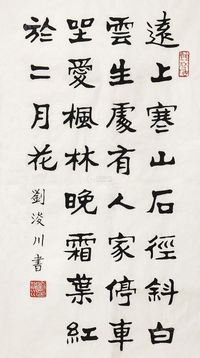 遠上寒山石徑斜白
雲生處有人家停車
坐愛楓林晚霜葉紅
於二月花
劉浚川書